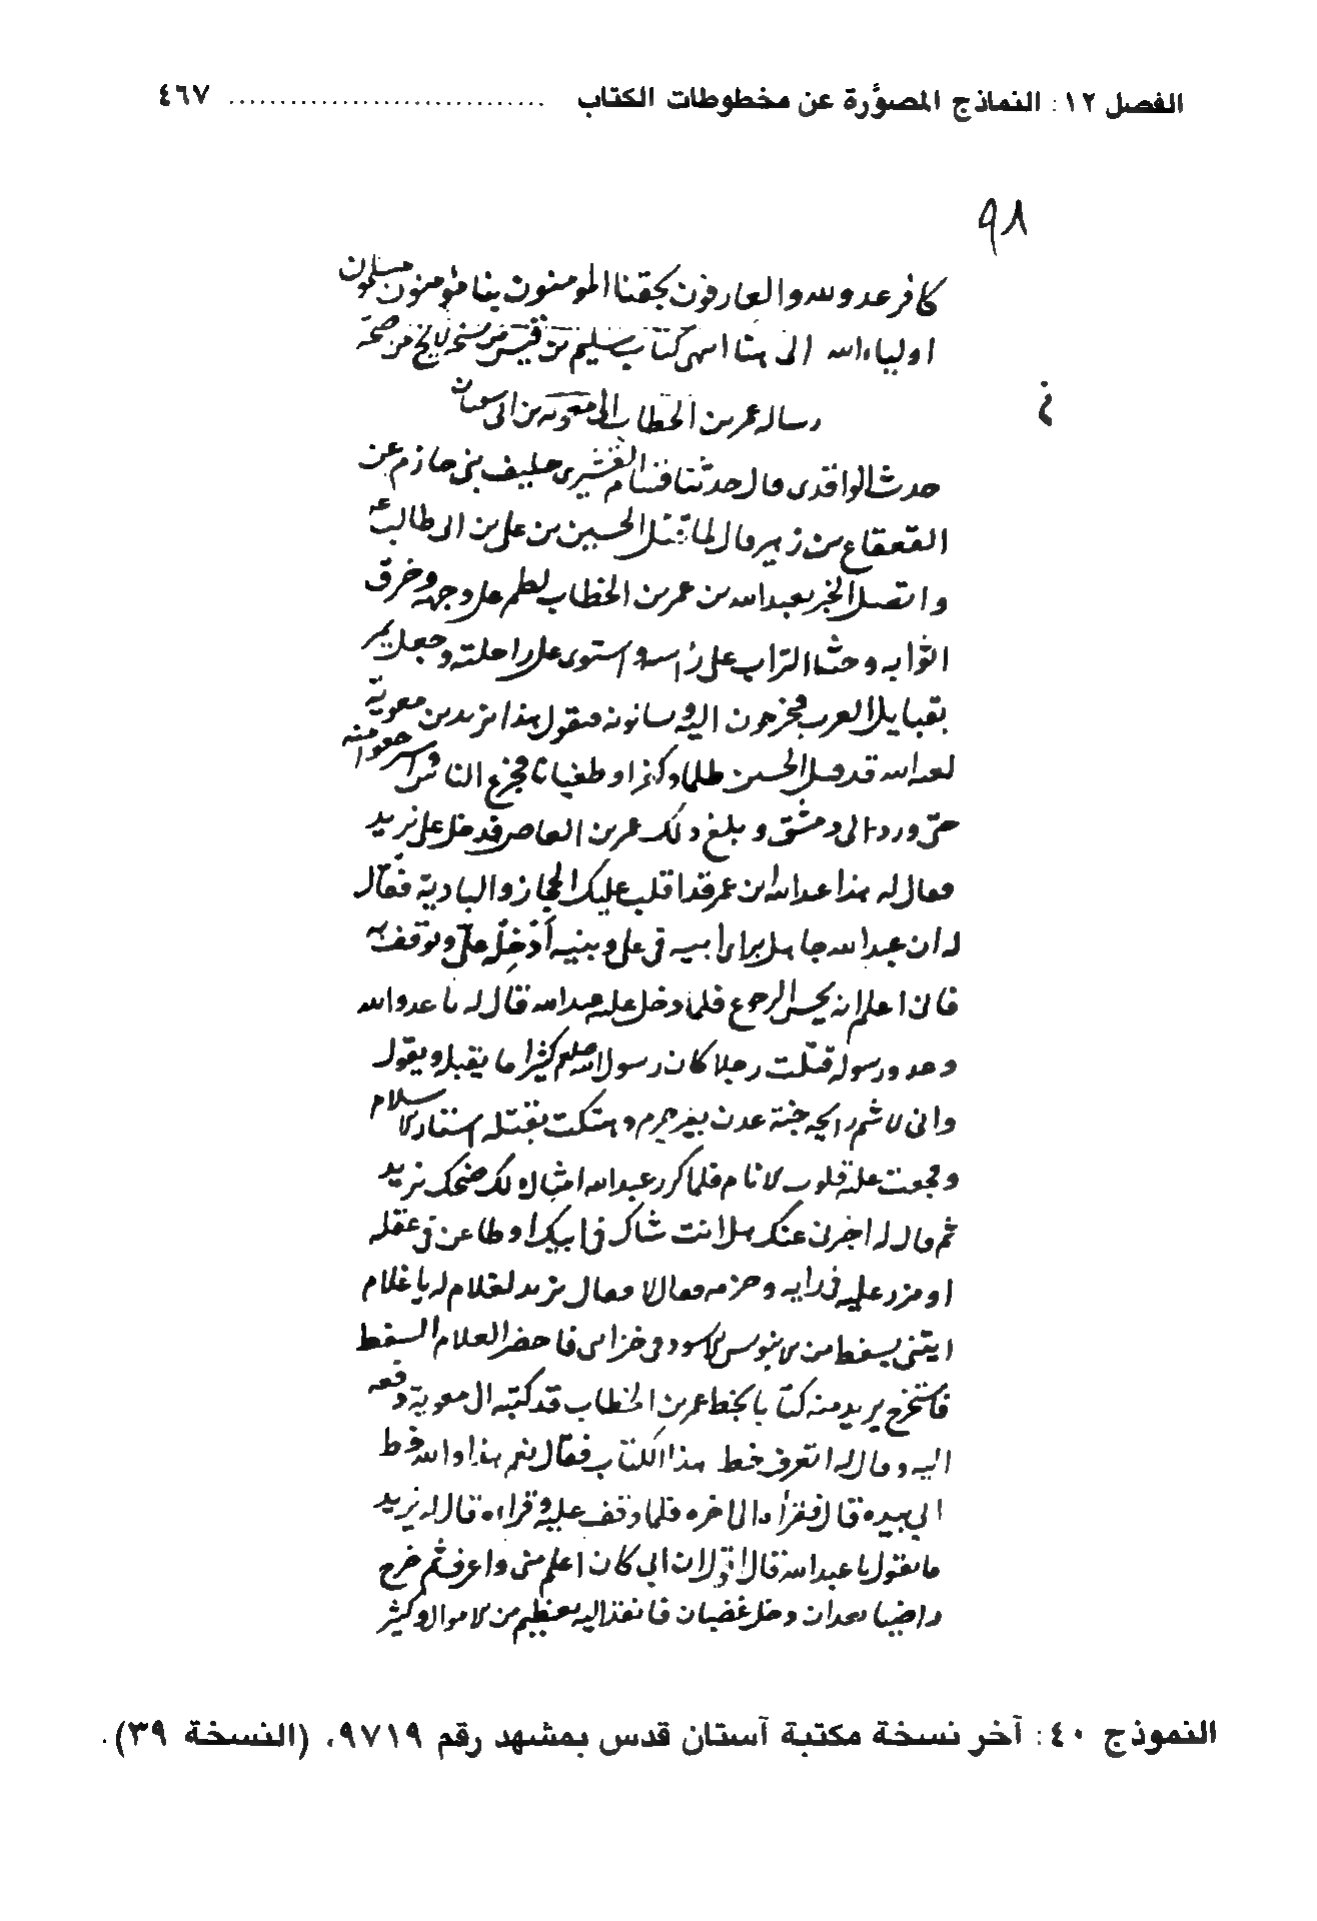 الفصل ١٢: النماذج المصوَّرة عن مخطوطات الكتاب .............................. ٤٦٧
٩٨
كافر عدو لله والعارفون بحقنا المومنون بنا مؤمنون مسلمون
اولياء الله الى هنا انتهى كتاب سليم بن قيس من نسخة
رساله عمر بن الخطاب الى معويه بن ابى سفيان
حدث الواقدى قال حدثنا القشيرى حليف بنى حازم عن
القعقاع بن زهير قال لما قتل الحسين بن على بن ابى طالب ع
واتصل الخبر بعبدالله بن عمر بن الخطاب لطم على وجهه وخرق
اثوابه وحثا التراب على رأسه واستوى على راحلته وجعل يمر
بقبايل العرب فيخرجون اليه ويسالونه فيقول هذا يزيد بن معوية
لعنه الله قد قتل الحسين ظلما وكفرا وطغيانا فجزع الناس
حتى ورد الى دمشق وبلغ ذلك عمر بن العاص فدخل على يزيد
فقال له هذا عبدالله ابن عمر قد اقلب عليك الحجاز والبادية فقال
له ان عبدالله جاهل براى ابيه فى على وبنيه أدْخِلْه علىّ وتوقف به
فانى اعلم انه يحسن الرجوع فلما دخل عليه عبدالله قال له يا عدو الله
وعدو رسوله قتلت رجلا كان رسول الله صلعم كثيرا ما يقبله ويقول
وانى لاشم رايحه جنة عدن بغير جرم وهتكت بقتله استار الاسلام
وفجعت عليه قلوب الانام فلما كرر عبدالله امثال ذلك ضحك يزيد
ثم قال له اخبرنى عنك هل انت شاك فى ابيك او طاعن فى عقله
او مزر عليه فى رايه وحزمه فقال لا فقال يزيد لغلام له يا غلام
ايتنى بسفط من الابنوس الاسود فى خزانى فاحضر الغلام السفط
فاستخرج يزيد منه كتابا بخط عمر بن الخطاب قد كتبه الى معوية دفعه
اليه وقال له اتعرف خط هذا الكتاب فقال نعم هذا والله خط
ابى بيده قال فقرأه الى اخره فلما وقف عليه وقراءه قال له يزيد
ما تقول يا عبدالله قال اقول ان ابى كان اعلم منى واعرف ثم خرج
راضيا بعد ان دخل غضبان فانفذ اليه بعظيم من الاموال وكثير
النموذج ٤٠: آخر نسخة مكتبة آستان قدس بمشهد رقم ٩٧١٩، (النسخة ٣٩).